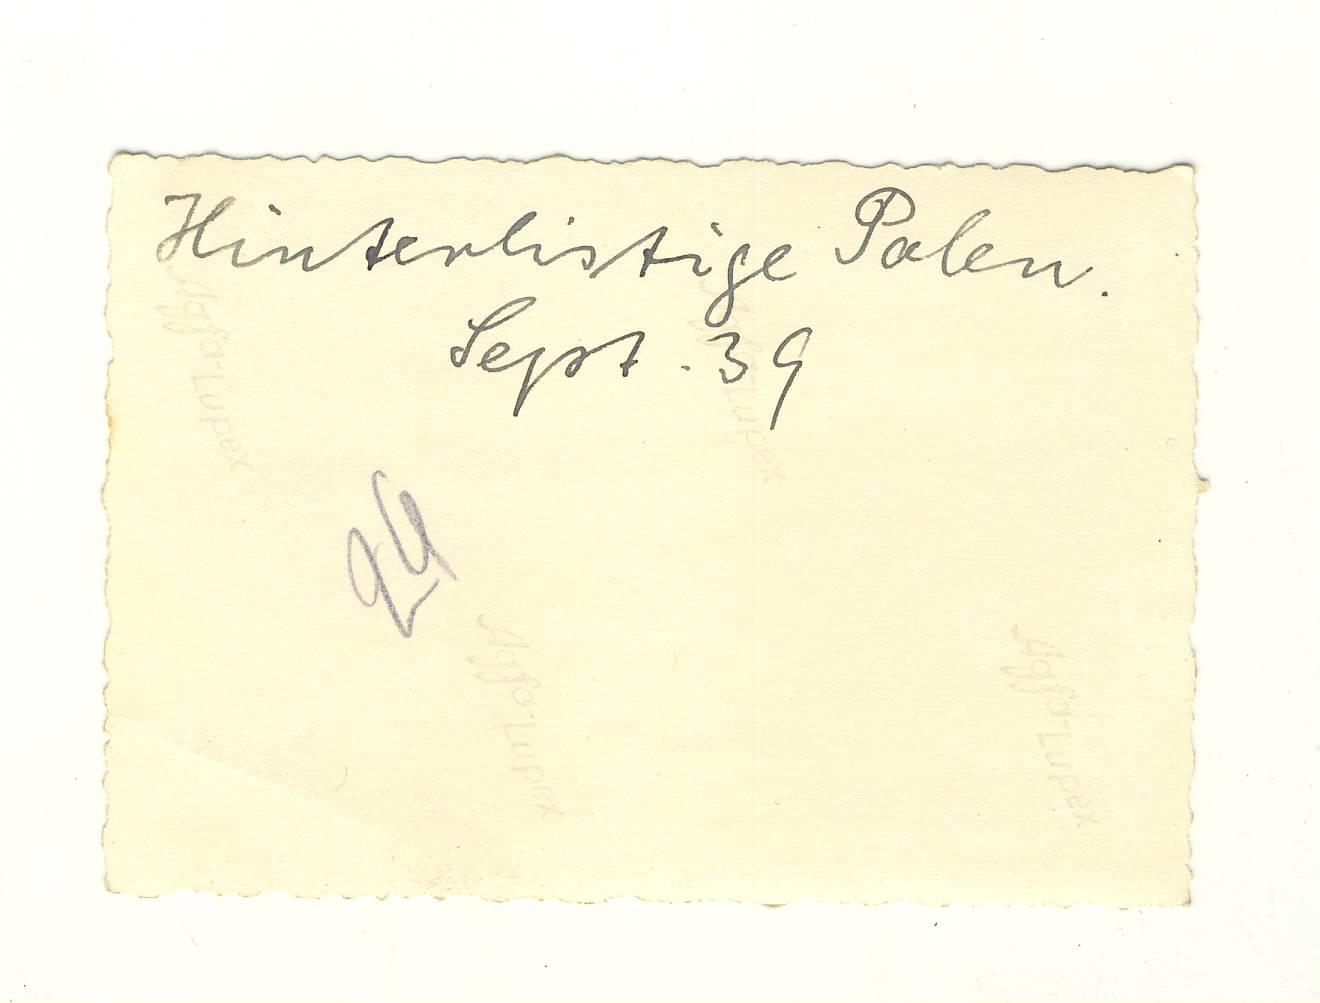 Hinterlistige Polen.
Sept. 39
Agfa-Lupex
Agfa-Lupex
26
Agfa-Lupex
Agfa-Lupex